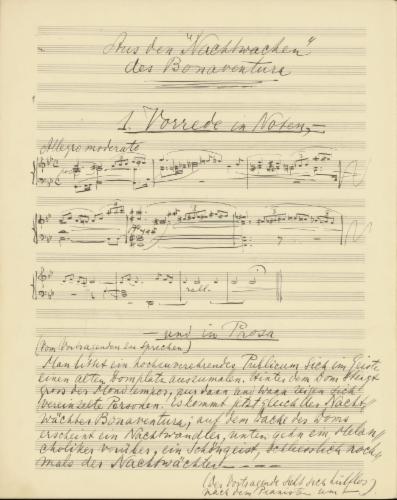 Aus den "Nachtwachen"
des Bonaventura
1. Vorrede in Noten,—
Allegro moderato
rall.
— und in Prosa
(Vom Vortragenden zu sprechen)
Man bittet ein hochzuverehrendes Publicum sich im Geiste
einen alten Domplatz auszumalen. Hinter dem Dom steigt
gross der Mond empor, nur dann und wann zeigen sich
vereinzelte Personen. Es kommt jetzt gleich der Nacht
wächter Bonaventura; auf dem Dache des Doms
erscheint ein Nachtwandler, unten gehn ein Melan
choliker vorüber, ein Schöngeist, schliesslich noch
mals der Nachtwächter
(Der Vortragende sieht sich hülflos
nach dem Pianisten um